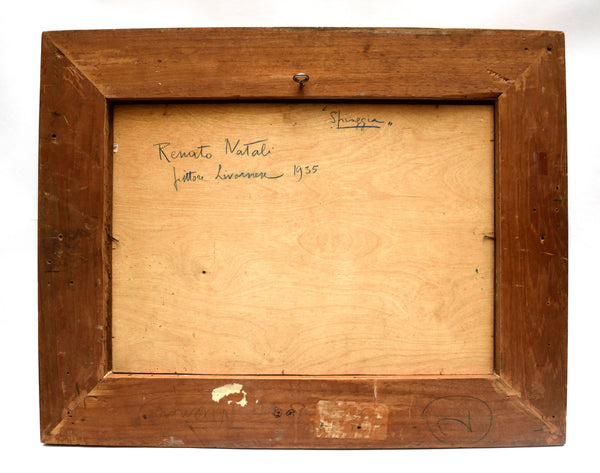 "Spiaggia"
Renato Natali
pittore Livornese 1935